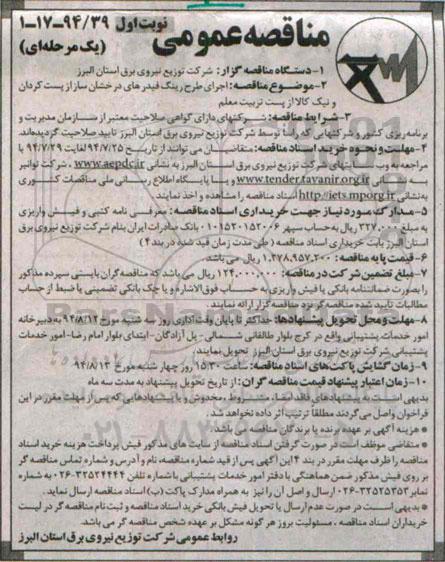 مناقصه عمومی
نوبت اول ۹۴/۳۹-۱۷-۱
(یک مرحله‌ای)
۱-دستگاه مناقصه گزار: شرکت توزیع نیروی برق استان البرز
۲-موضوع مناقصه: اجرای طرح رینگ فیدر های درخشان ساز از پست کردان
و نیک کالا از پست تربیت معلم
۳-شرایط مناقصه: شرکتهای دارای گواهی صلاحیت معتبر از سازمان مدیریت و
برنامه ریزی کشور و شرکتهایی که رأسا توسط شرکت توزیع نیروی برق استان البرز تایید صلاحیت گردیده‌اند.
۴-مهلت و نحوه خرید اسناد مناقصه: متقاضیان می توانند از تاریخ ۹۴/۷/۲۵ لغایت ۹۴/۷/۲۹ با
مراجعه به وب سایتهای شرکت توزیع نیروی برق استان البرز به نشانی www.aepdc.ir ، شرکت توانیر
به نشانی www.tender.tavanir.org.ir و یا پایگاه اطلاع رسانی ملی مناقصات کشوری
به نشانی http://iets.mporg.ir اسناد مناقصه را مشاهده و اخذ نمایند
۵-مدارک مورد نیاز جهت خریداری اسناد مناقصه: معرفی نامه کتبی و فیش واریزی
به مبلغ ۳۲۷،۰۰۰ ریال به حساب سپهر ۰۱۰۱۵۲۰۱۵۲۰۰۶ بانک صادرات ایران بنام شرکت توزیع نیروی برق
استان البرز بابت خریداری اسناد مناقصه (طی مدت زمان قید شده در بند ۴)
۶-قیمت پایه مناقصه: ۱،۲۷۸،۹۵۷،۲۰۰ ریال می باشد.
۷-مبلغ تضمین شرکت در مناقصه: ۱۲۴،۰۰۰،۰۰۰ ریال می باشد که مناقصه گران بایستی سپرده مذکور
را بصورت ضمانتنامه بانکی یا فیش واریزی به حساب فوق الاشاره و یا چک بانکی تضمینی یا ضبط از حساب
مطالبات تایید شده مناقصه گر نزد مناقصه گزار ارائه نمایند.
۸-مهلت و محل تحویل پیشنهادها: حداکثر تا پایان وقت اداری روز سه شنبه مورخ ۹۴/۸/۱۲ به دبیرخانه
امور خدمات پشتیبانی واقع در کرج بلوار طالقانی شمالی- پل آزادگان-ابتدای بلوار امام رضا-امور خدمات
پشتیبانی شرکت توزیع نیروی برق استان البرز تحویل نمایند.
۹-زمان گشایش پاکت های اسناد مناقصه: ساعت ۱۵:۳۰ روز چهار شنبه مورخ ۹۴/۸/۱۳
۱۰-زمان اعتبار پیشنهاد قیمت مناقصه گران: از تاریخ تحویل پیشنهاد به مدت سه ماه
بدیهی است به پیشنهادهای فاقد امضا، مشروط، مخدوش و یا پیشنهادهایی که پس از مهلت مقرر در این
فراخوان واصل می گردند مطلقا ترتیب اثر داده نخواهد شد.
* هزینه آگهی بر عهده برنده یا برندگان مناقصه می باشد.
* متقاضی موظف است در صورت گرفتن اسناد مناقصه از سایت های مذکور فیش پرداخت هزینه خرید اسناد
مناقصه را ظرف مهلت مقرر در بند ۴ این آگهی پس از قید شماره مناقصه، نام و آدرس و شماره تماس مناقصه گر
بر روی فیش مذکور ضمن هماهنگی با دفتر امور خدمات پشتیبانی با شماره تلفن ۳۲۵۲۴۴۴۴-۰۲۶ به شماره
نمابر ۳۲۵۲۵۳۵۳-۰۲۶ ارسال و اصل آن را نیز به همراه مدارک پاکت (ب) اسناد مناقصه ارسال نماید.
* بدیهی است در صورت عدم ارسال یا تحویل فیش بانکی خرید اسناد مناقصه و ثبت نام مناقصه گر در لیست
خریداران اسناد مناقصه ، مسئولیت بروز هر گونه مشکل بر عهده شخص مناقصه گر می باشد.
روابط عمومی شرکت توزیع نیروی برق استان البرز